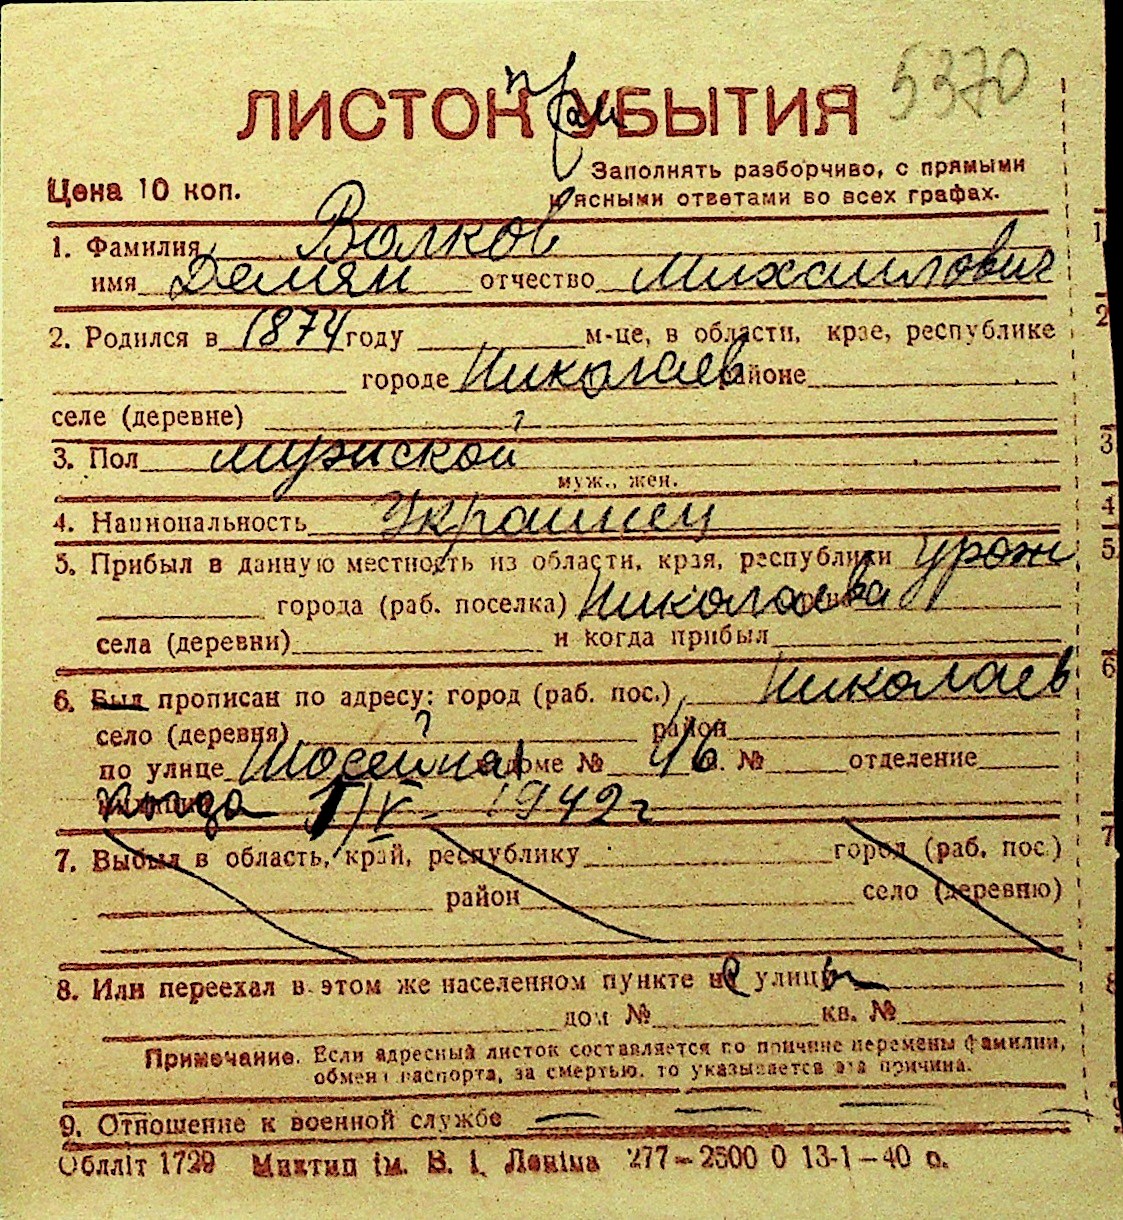 5370
ЛИСТОК при УБЫТИЯ
Цена 10 коп.
Заполнять разборчиво, с прямыми
и ясными ответами во всех графах.
1. Фамилия Волков
имя Демян отчество Михаилович
2. Родился в 1874 году м-це, в области, крае, республике
городе Николаев районе
селе (деревне)
3. Пол мужской
муж., жен.
4. Национальность Украинец
5. Прибыл в данную местность из области, края, республики урож
города (раб. поселка) Николаева
села (деревни) и когда прибыл
6. Был прописан по адресу: город (раб. пос.) Николаев
село (деревня) район
по улице Шосейная доме № 46 кв. № отделение
Когда 1/V - 1942 г
7. Выбыл в область, край, республику город (раб. пос.)
район село (деревню)
8. Или переехал в этом же населенном пункте с улицы
дом № кв. №
Примечание. Если адресный листок составляется по причине перемены фамилии,
обмена паспорта, за смертью, то указывается эта причина.
9. Отношение к военной службе
Облліт 1729 Миктип ім. В. І. Леніна 277—2500 0 13-1—40 р.